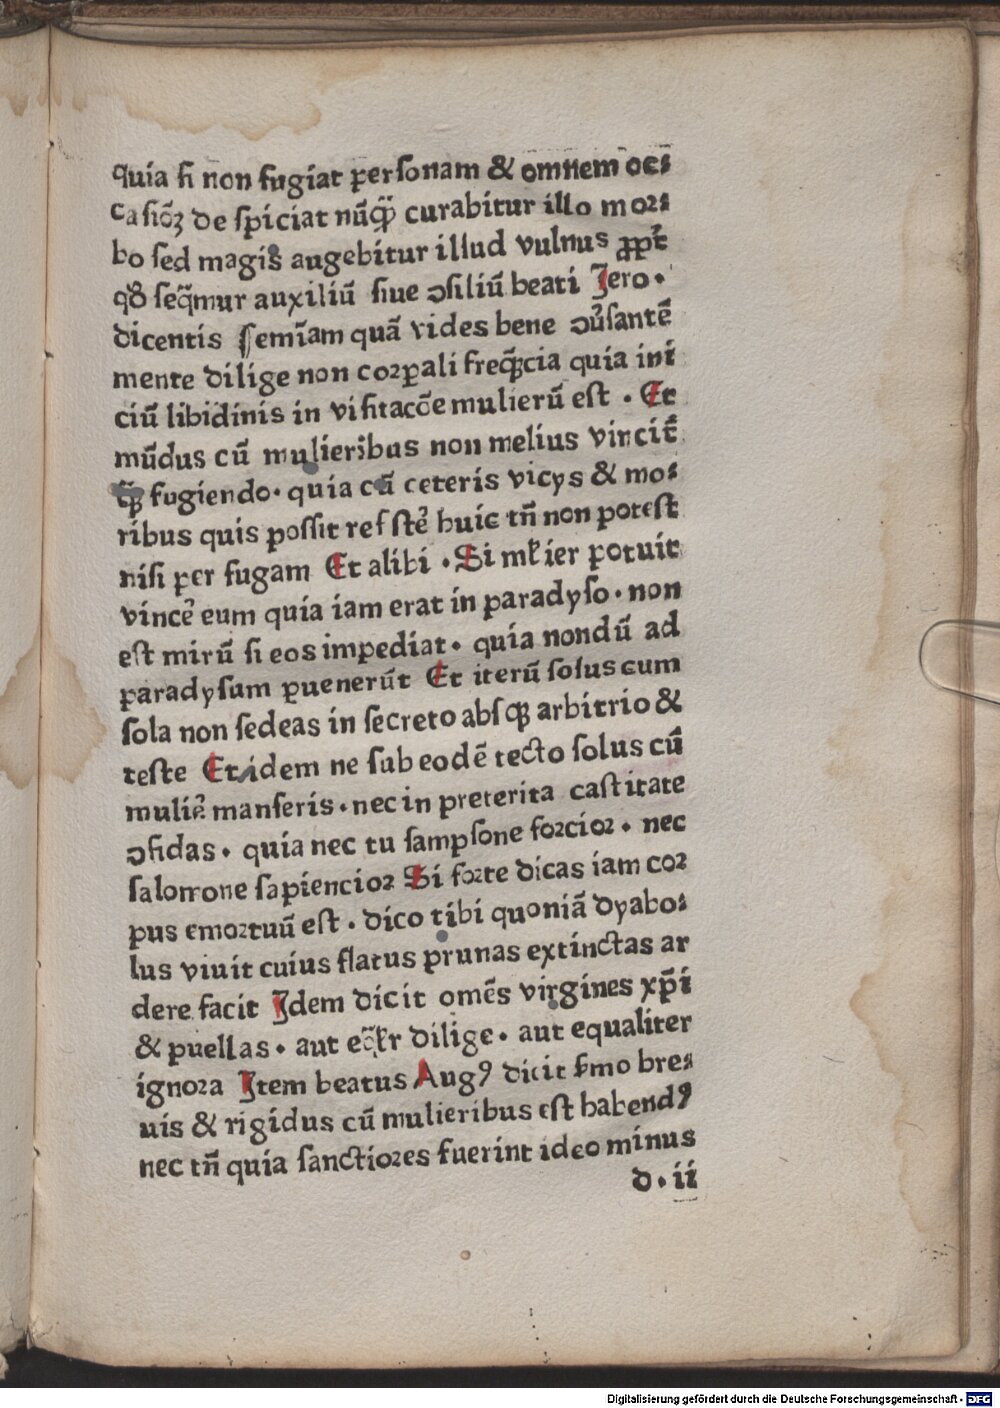 quia si non fugiat personam & omnem oc⸗
casiõꝫ de spiciat nũq̃ curabitur illo moꝛ⸗
bo sed magis augebitur illud vulnus ꝓpt̾
qď seq̃mur auxiliũ siue ↄsiliũ beati Jero·
dicentis semĩam quã vides bene ↄũsantẽ
mente dilige non coꝛpali freq̃cia quia ini
ciũ libidinis in visitacõe mulierũ est · Et
mũdus cũ mulieribus non melius vincit̃
q̃ fugiendo· quia cũ ceteris vicys & mo⸗
ribus quis possit resistẽ huic tñ non potest
nisi per fugam Et alibi · Si mĺier potuit
vincẽ eum quia iam erat in paradyso · non
est mirũ si eos impediat · quia nondũ ad
paradysum puenerũt Et iterũ solus cum
sola non sedeas in secreto absqꝫ arbitrio &
teste Et idem ne sub eodẽ tecto solus cũ
muliẽ manseris · nec in preterita castitate
ↄfidas · quia nec tu sampsone foꝛcioꝛ · nec
salomone sapiencioꝛ Si foꝛte dicas iam coꝛ
pus emoꝛtuũ est · dico tibi quoniã dyabo⸗
lus viuit cuius flatus prunas extinctas ar
dere facit Jdem dicit omẽs virgines xp̃i
& puellas · aut eq̃ĺr dilige · aut equaliter
ignoꝛa Jtem beatus Augꝰ dicit ẜmo bre⸗
uis & rigidus cũ mulieribus est habendꝰ
nec tñ quia sanctioꝛes fuerint ideo minus
d · ii
Digitalisierung gefördert durch die Deutsche Forschungsgemeinschaft - DFG